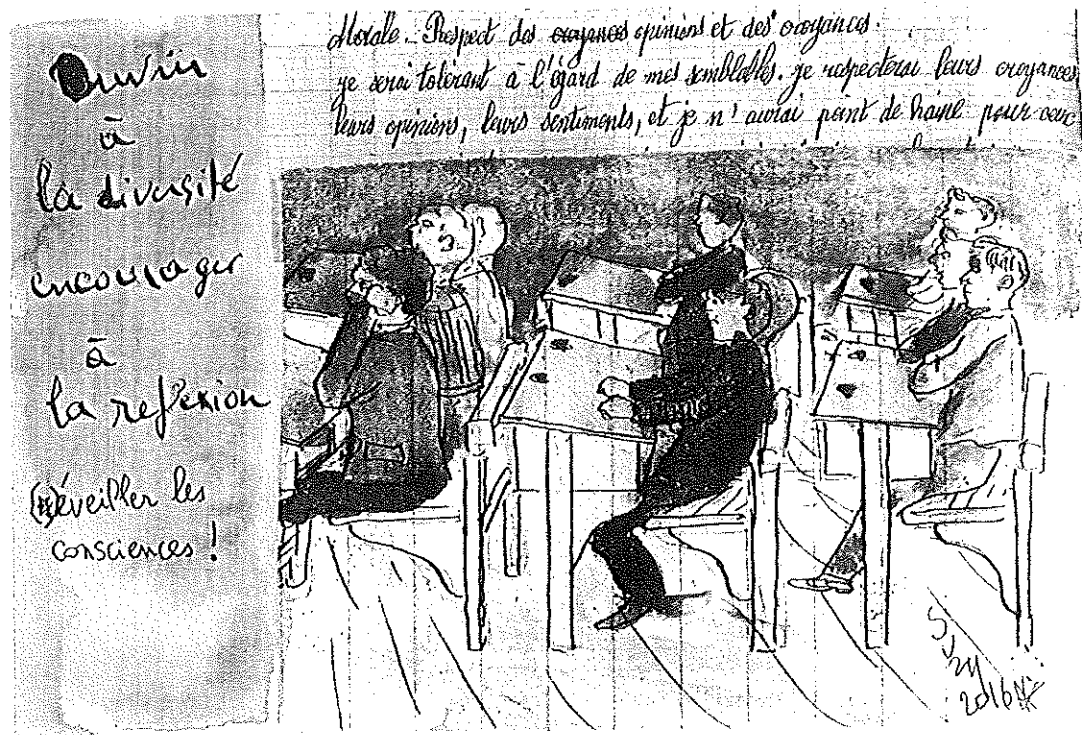 Ouvrir
à
la diversité
encourager
à
la reflexion
(r)éveiller les
consciences !
Morale. Respect des croyances opinions et des croyances.
je serai tolérant à l'égard de mes semblables. je respecterai leurs croyances
leurs opinions, leurs sentiments, et je n'aurai point de haine pour ceux
2016